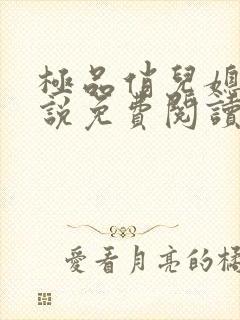 極品俏兒媳
說免費閱讀
愛看月亮的橘